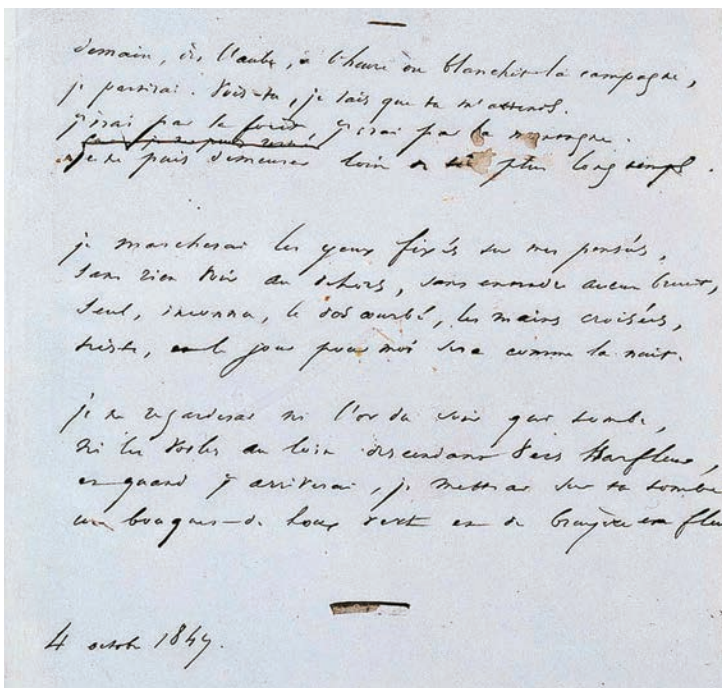 demain, dès l'aube, à l'heure où blanchit la campagne,
je partirai. Vois-tu, je sais que tu m'attends.
j'irai par la forêt, j'irai par la montagne.
car je ne puis rester
je ne puis demeurer loin de toi plus longtemps.
je marcherai les yeux fixés sur mes pensées,
sans rien voir au dehors, sans entendre aucun bruit,
seul, inconnu, le dos courbé, les mains croisées,
triste, et le jour pour moi sera comme la nuit.
je ne regarderai ni l'or du soir qui tombe,
ni les voiles au loin descendant vers Harfleur,
et quand j'arriverai, je mettrai sur ta tombe
un bouquet de houx vert et de bruyère en fleu
4 octobre 1847.